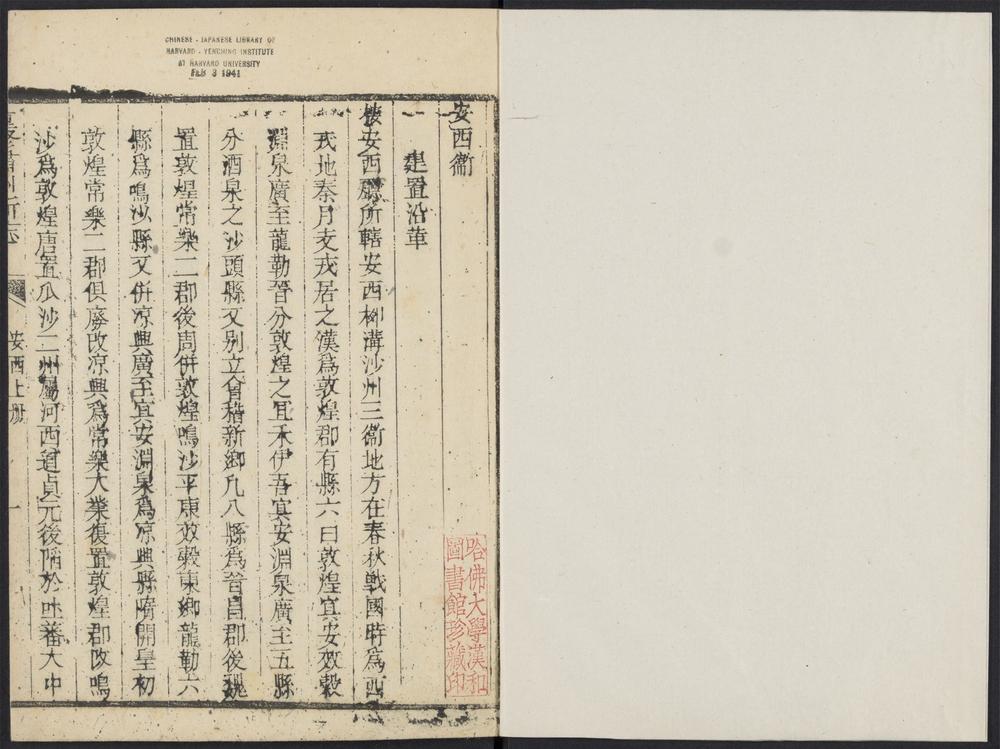 CHINESE - JAPANESE LIBRARY OF
HARVARD - YENCHING INSTITUTE
AT HARVARD UNIVERSITY
FEB 3 1941
安西衞
建置沿革
按安西廳所轄安西柳溝沙州三衞地方在春秋戰國時爲西
戎地秦月支戎居之漢爲敦煌郡有縣六曰敦煌冥安效榖
淵泉廣至龍勒晉分敦煌之宜禾伊吾冥安淵泉廣至五縣
分酒泉之沙頭縣又别立會稽新鄉凡八縣爲晉昌郡後魏
置敦煌常樂二郡後周併敦煌鳴沙平康效榖東鄉龍勒六
縣爲鳴沙縣又併凉興廣至冥安淵泉爲凉興縣隋開皇初
敦煌常樂二郡俱廢改凉興爲常樂大業復置敦煌郡改鳴
沙爲敦煌唐置瓜沙二州屬河西道貞元後陷於吐蕃大中
重修肅州新志
安西上册
一
哈佛大學漢和
圖書館珍藏印